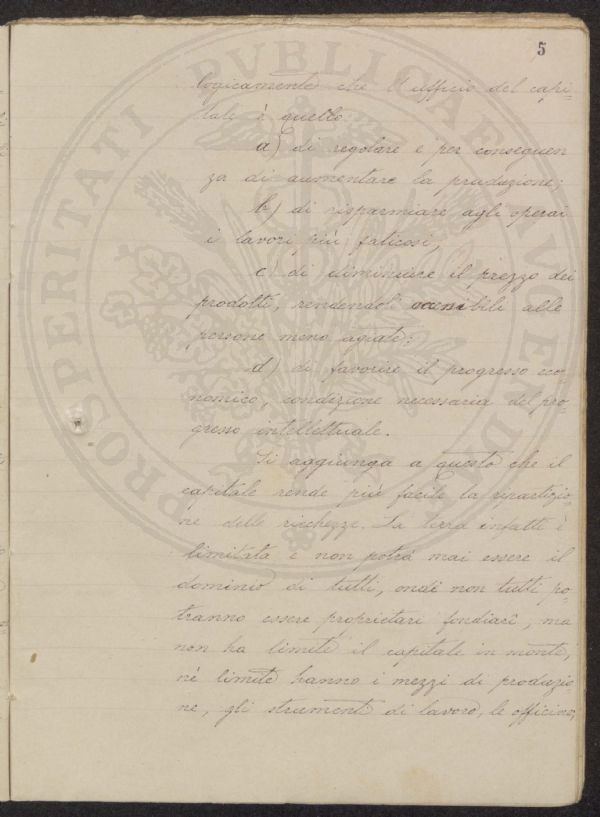 5
logicamente che l'ufficio del capi-
tale è quello
a) di regolare e per conseguen
za di aumentare la produzione;
b) di risparmiare agli operai
i lavori più faticosi,
c) di diminuire il prezzo dei
prodotti, rendendoli accessibili alle
persone meno agiate;
d) di favorire il progresso eco-
nomico, condizione necessaria del pro-
gresso intellettuale.
Si aggiunga a questo che il
capitale rende più facile la ripartizio-
ne delle ricchezze. La terra infatti è
limitata e non potrà mai essere il
dominio di tutti, onde non tutti po-
tranno essere proprietari fondiari, ma
non ha limite il capitale in monte,
nè limite hanno i mezzi di produzio-
ne, gli strumenti di lavoro, le officine,
PROSPERITATI PVBLICAE AVGENDAE